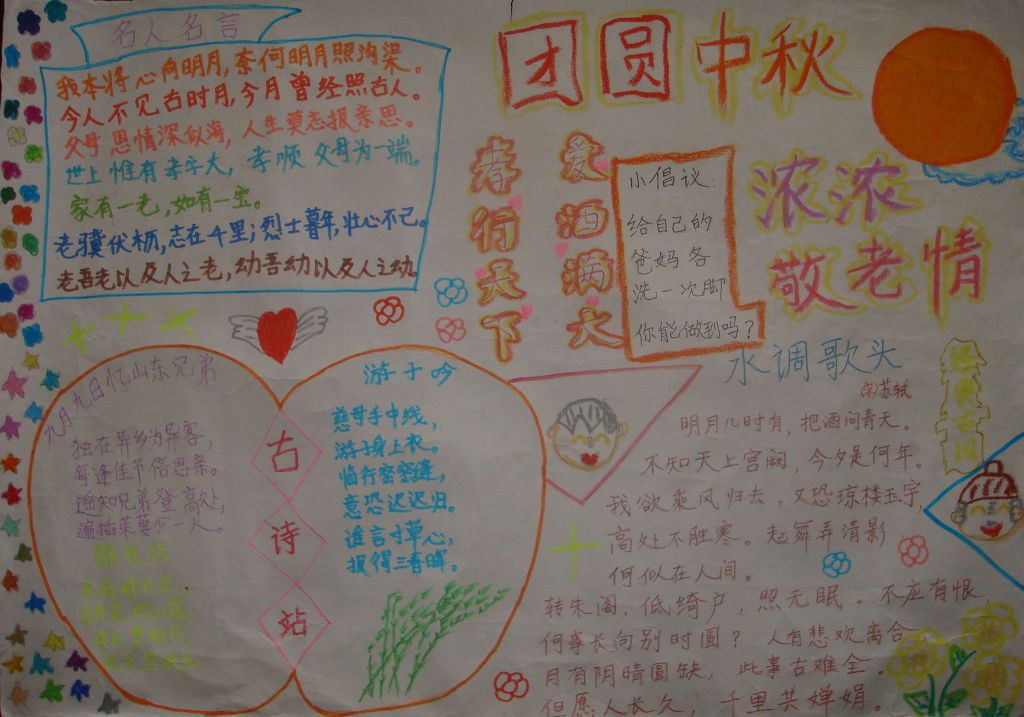 名人名言
我本将心向明月,奈何明月照沟渠。
今人不见古时月,今月曾经照古人。
父母恩情深似海,人生莫忘报亲恩。
世上惟有孝字大,孝顺父母为一端。
家有一老,如有一宝。
老骥伏枥,志在千里;烈士暮年,壮心不已。
老吾老以及人之老,幼吾幼以及人之幼
团圆中秋
孝行天下
爱洒满大
小倡议:
给自己的
爸妈各
洗一次脚
你能做到吗?
浓浓
敬老情
九月九日忆山东兄弟
独在异乡为异客,
每逢佳节倍思亲。
遥知兄弟登高处,
遍插茱萸少一人。
古诗站
游子吟
慈母手中线,
游子身上衣。
临行密密缝,
意恐迟迟归。
谁言寸草心,
报得三春晖。
水调歌头
宋苏轼
明月几时有,把酒问青天。
不知天上宫阙,今夕是何年。
我欲乘风归去,又恐琼楼玉宇,
高处不胜寒。起舞弄清影
何似在人间。
转朱阁,低绮户,照无眠。不应有恨
何事长向别时圆?人有悲欢离合,
月有阴晴圆缺,此事古难全。
但愿人长久,千里共婵娟。